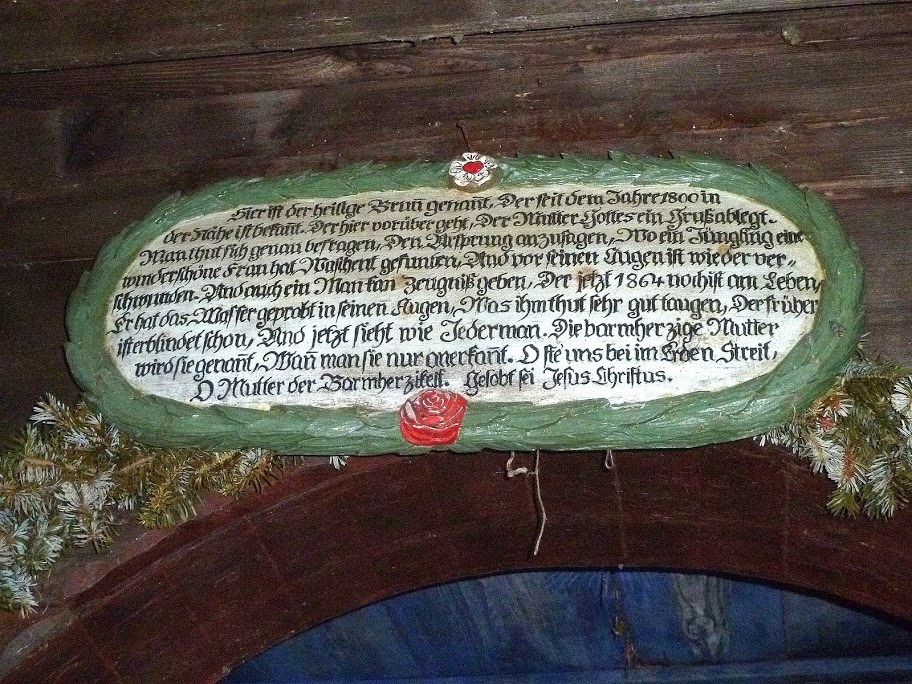 Hier ist der heillge Bruñ genant, Der seit dem Jahre 1800 in
der Nähe ist bekant. Der hier vorüber geht, Der Mutter Gottes ein Grußablegt.
Man thut sich genau befragen, Den Ursprung anzusagen, Wo ein Jüngling eine
wunderschöne Frau hat Waschent gefunden, And vor seinen Augen ist wie der ver-
schwunden. And auch ein Man kan Zeugniß geben, Der jetzt 1864 noch ist am Leben,
Er hat das Wasser geprobt in seinen Augen, Was ihm thut sehr gut taugen, Der früher
ist erblindet schon, And jetzt sieht wie Jederman. Die barmher zige Mutter
wird sie genant, Wañ man sie nur anerkañt. O ste uns bei im Erden Streit,
O Mutter der Barmherzikeit. Gelobt sei Jesus Christus.